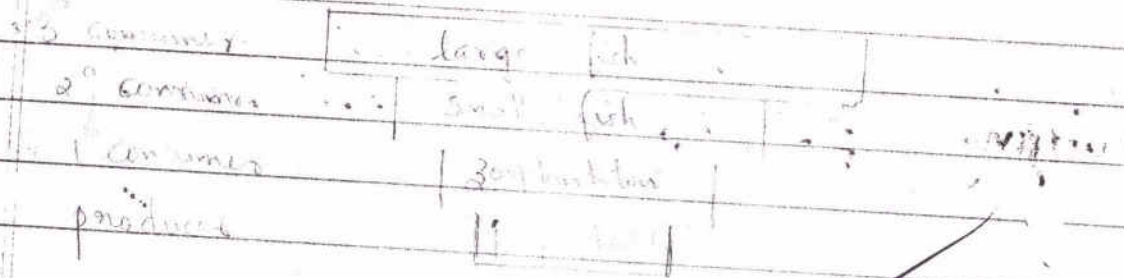 3° consumer large fish
2° consumer small fish
1° consumer zooplankton
producer